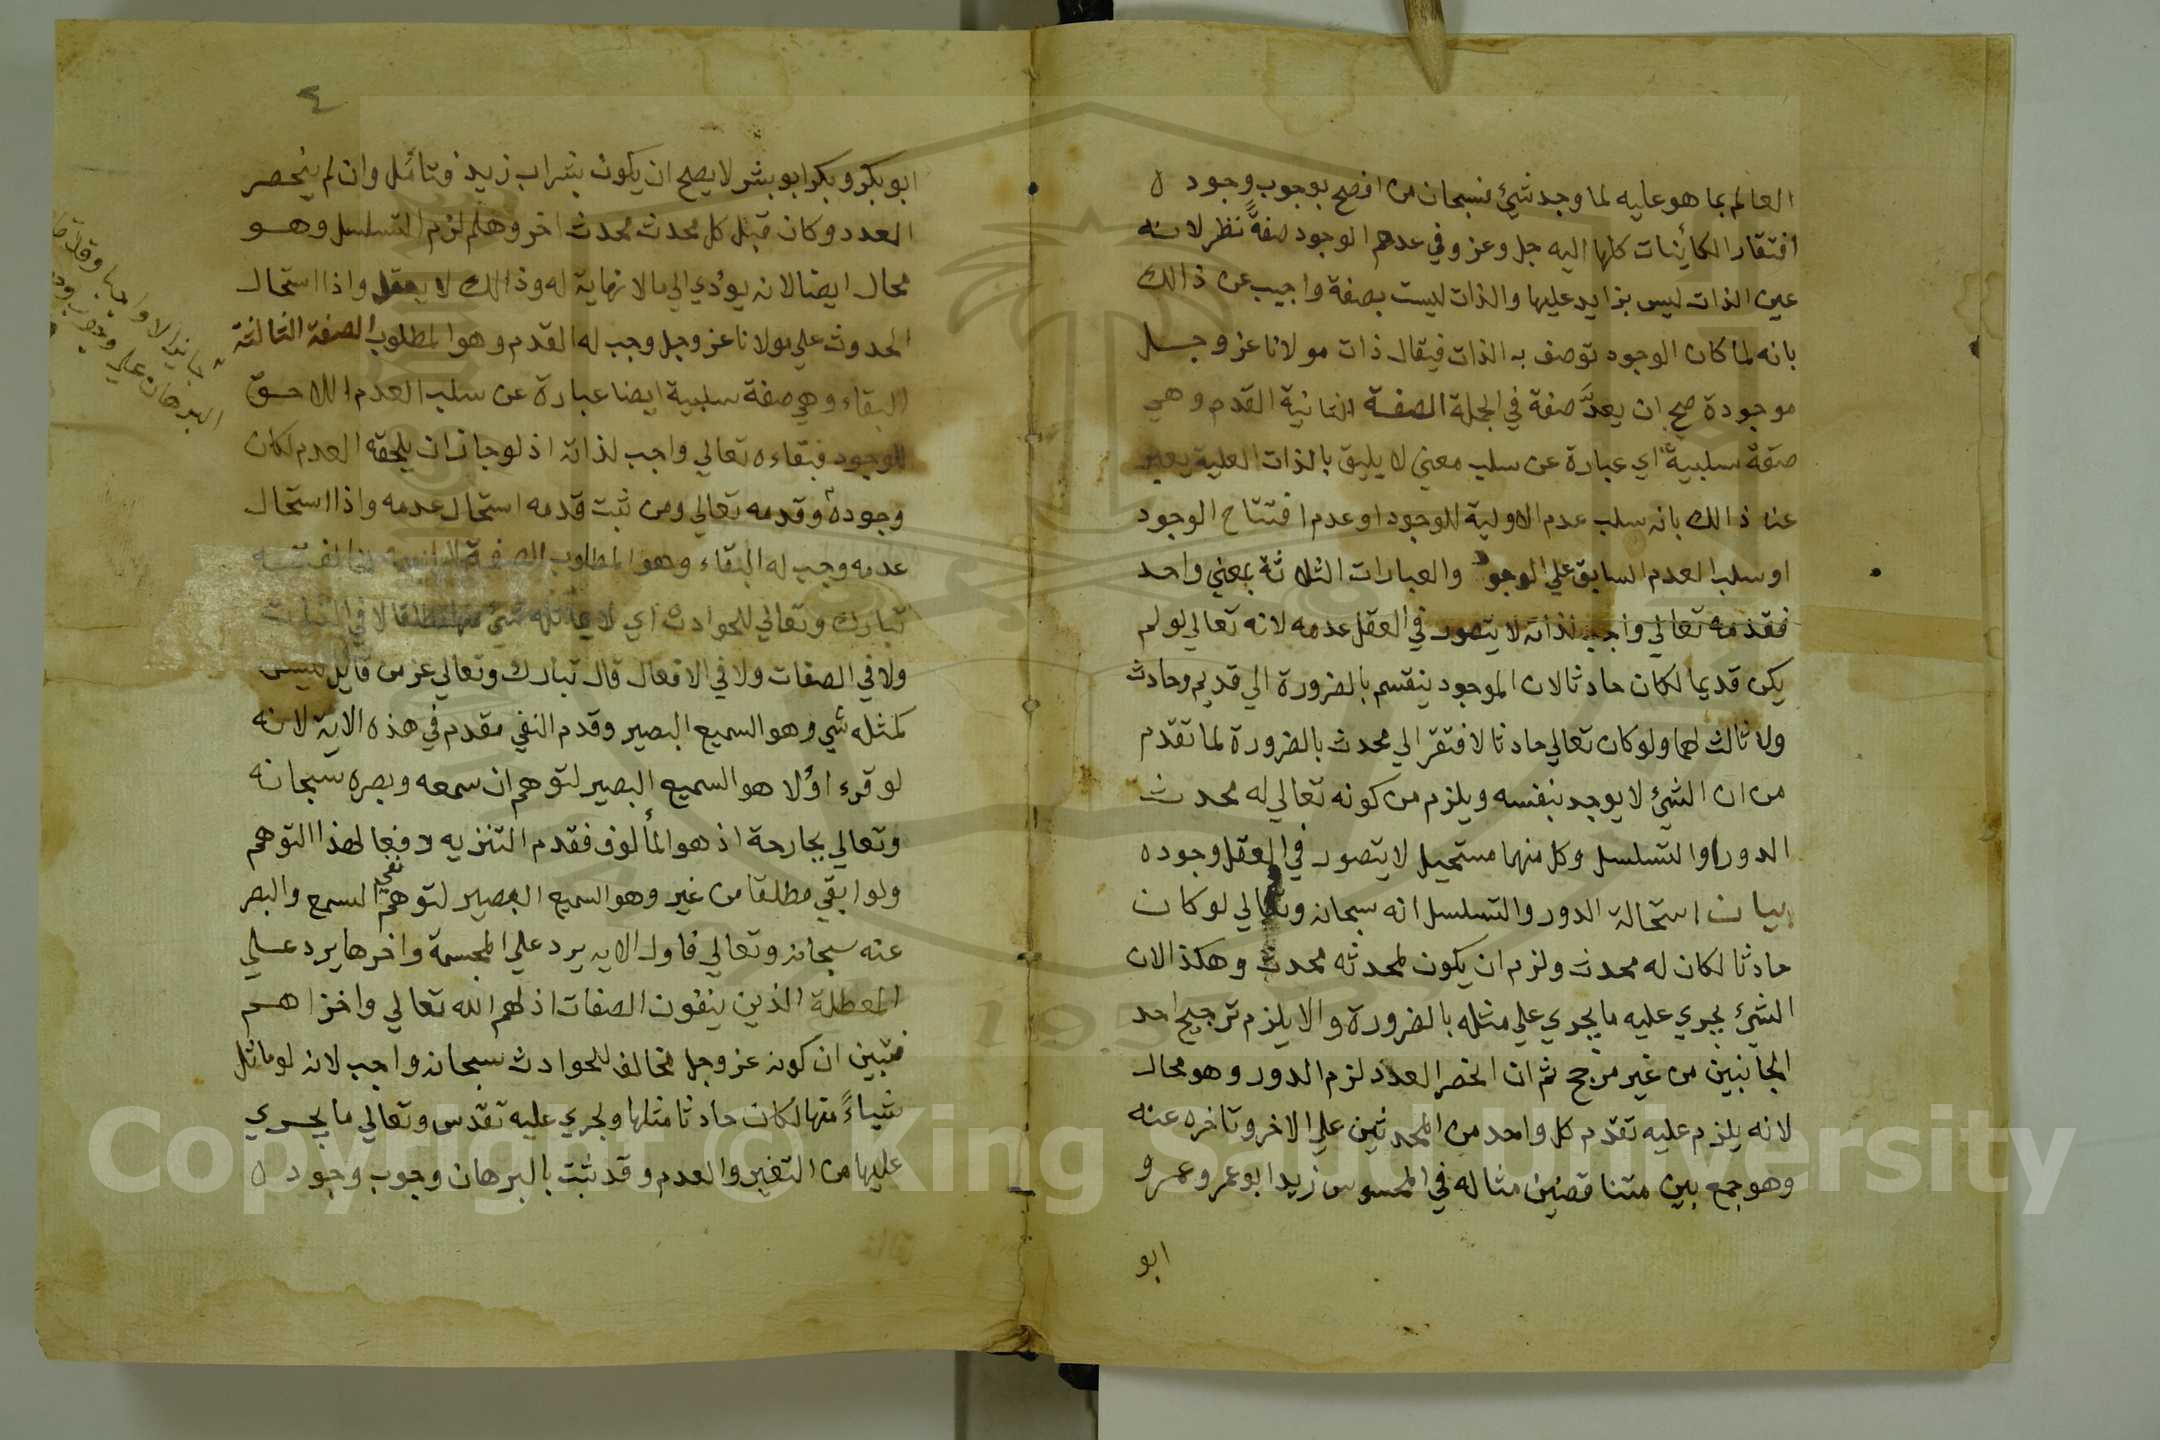 العالم بما هو عليه لما وجد شيئ فسبحان من افصح بوجوب وجوده
افتقار الكائنات كلها اليه جل وعز وفي عدهم الوجود صفةً نظر لانه
عين الذات ليس بزايد عليها والذات ليست بصفة واجيب عن ذالك
بانه لما كان الوجود توصف به الذات فيقال ذات مولانا عز وجل
موجودة صح ان يعدَّ صفة في الجملة الصفة الثانية القدم وهي
صفة سلبية اي عبارة عن سلب معني لا يليق بالذات العلية يعبر
عنه ذالك بانه سلب عدم الاولية للوجود او عدم افتتاح الوجود
او سلب العدم السابق علي الوجود والعبارات الثلاثة بمعني واحد
فقدمه تعالي واجب لذاته لا يتصور في العقل عدمه لانه تعالي لو لم
يكن قديما لكان حادثا لان الموجود ينقسم بالضرورة الي قديم وحادث
ولا ثالث لهما ولو كان تعالي حادثا لافتقر الي محدث بالضرورة لما تقدم
من ان الشيئ لا يوجد بنفسه ويلزم من كونه تعالي له محدث
الدور والتسلسل وكل منهما مستحيل لا يتصور في العقل وجوده
بيان استحالة الدور والتسلسل انه سبحانه وتعالي لو كان
حادثا لكان له محدث ولزم ان يكون لمحدثه محدث وهكذا لان
الشيئ يجري عليه ما يجري علي مثله بالضرورة والا يلزم ترجيح احد
الجانبين من غير مرجح ثم ان انحصر العدد لزم الدور وهو محال
لانه يلزم عليه تقدم كل واحد من المحدثين علي الاخر وتاخره عنه
وهو جمع بين متناقضين مثاله في المحسوس زيد ابو عمرو عمرو
ابو
٤
ابو بكر وبكر ابو بشر لا يصح ان يكون بشر اب زيد فتأمل وان لم ينحصر
العدد وكان قبل كل محدث محدث اخر وهلم لزم التسلسل وهو
محال ايضا لانه يؤدي الي ما لا نهاية له وذالك لا يعقل واذا استحال
الحدوث علي مولانا عز وجل وجب له القدم وهو المطلوب الصفة الثالثة
البقاء وهي صفة سلبية ايضا عبارة عن سلب العدم اللاحق
للوجود فبقاءه تعالي واجب لذاته اذ لو جاز ان يلحقه العدم لكان
وجوده وقدمه تعالي ومن ثبت قدمه استحال عدمه واذا استحال
عدمه وجب له البقاء وهو المطلوب الصفة الرابعة مخالفته
تبارك وتعالي للحوادث اي لا يماثله شيئ منها مطلقا لا في الذات
ولا في الصفات ولا في الافعال قال تبارك وتعالي عز من قايل ليس
كمثله شي وهو السميع البصير وقدم النفي مقدم في هذه الاية لانه
لو قرء اولا هو السميع البصير لتوهم ان سمعه وبصره سبحانه
وتعالي بجارحة اذ هو المألوف فقدم التنزيه دفعا لهذا التوهم
ولو ابقي مطلقا من غير وهو السميع البصير لتوهم نفي السمع والبصر
عنه سبحانه وتعالي فاول الايه يرد علي المجسمة واخرها يرد علي
المعطلة الذين ينفون الصفات اذلهم الله تعالي واخزاهم
فتبين ان كونه عز وجل مخالف للحوادث سبحانه واجب لانه لو ماثل
شياءً منها لكان حادثا مثلها ولجري عليه تقدس وتعالي ما يجري
عليها من التغير والعدم وقد ثبت بالبرهان وجوب وجوده